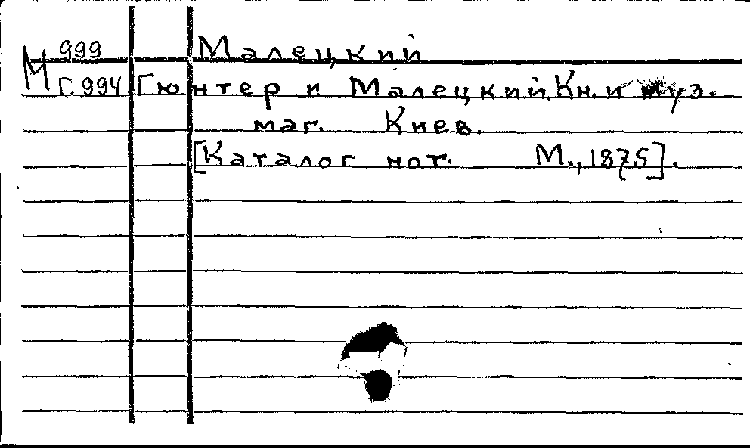 М 999 Малецкий
Г 994 Гюнтер и Малецкий. Кн. и муз.
маг. Киев.
[Каталог нот. М., 1875].